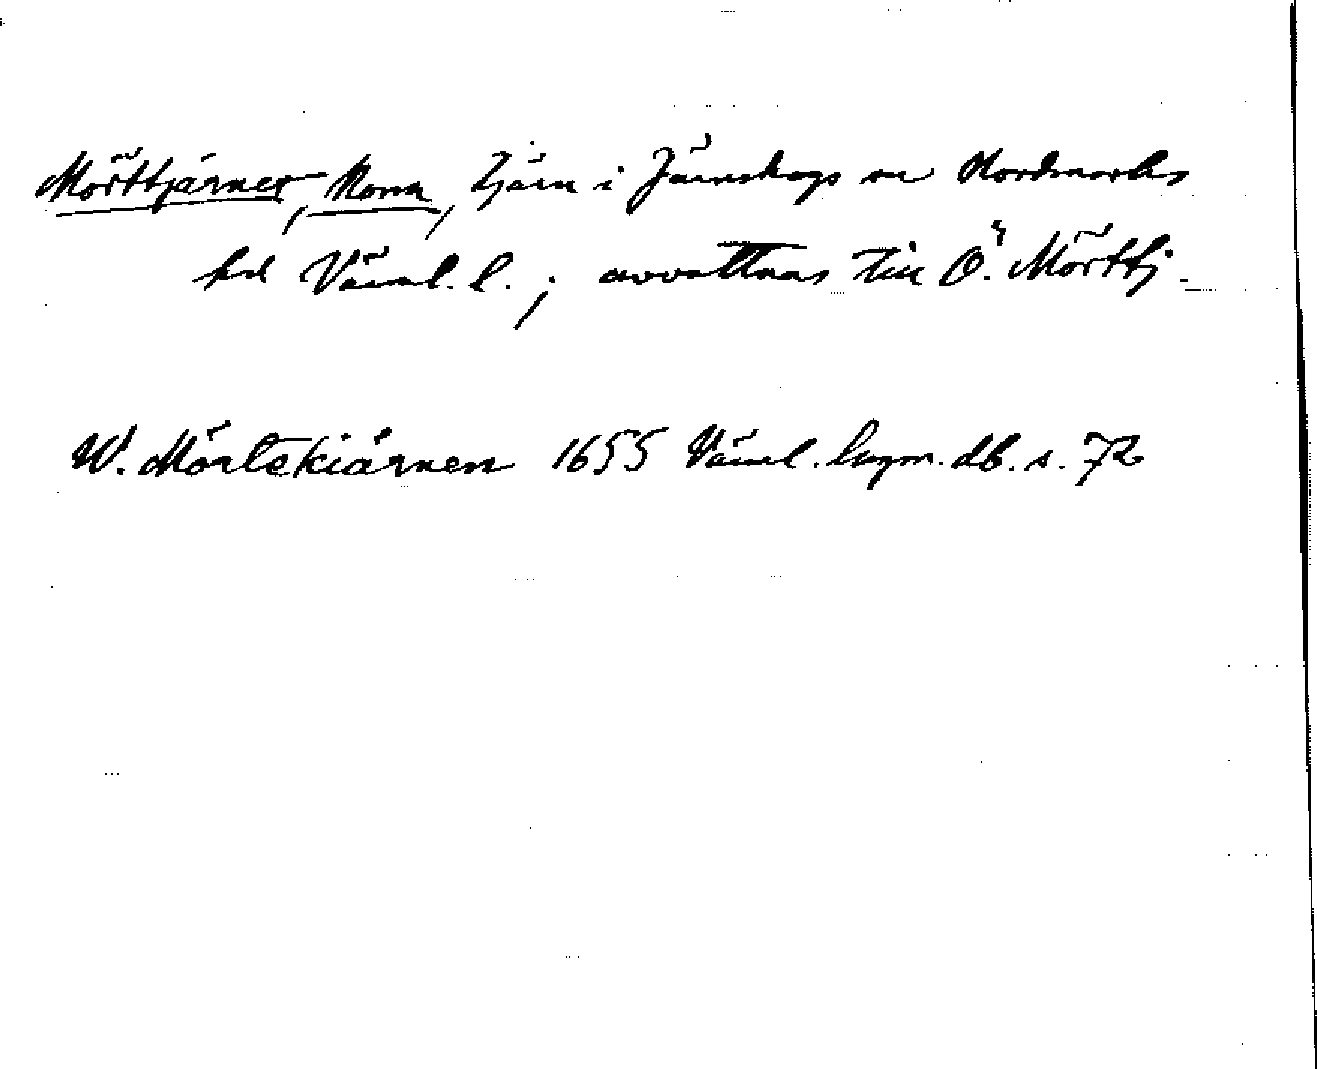 Mörttjärnet, Norra, tjärn i Järnskogs sn Nordmarks
hd Värml. l.; avvattnas till Ö. Mörttj.
W. Mörtekiärnen 1655 Värml. lagm. db. s. 72